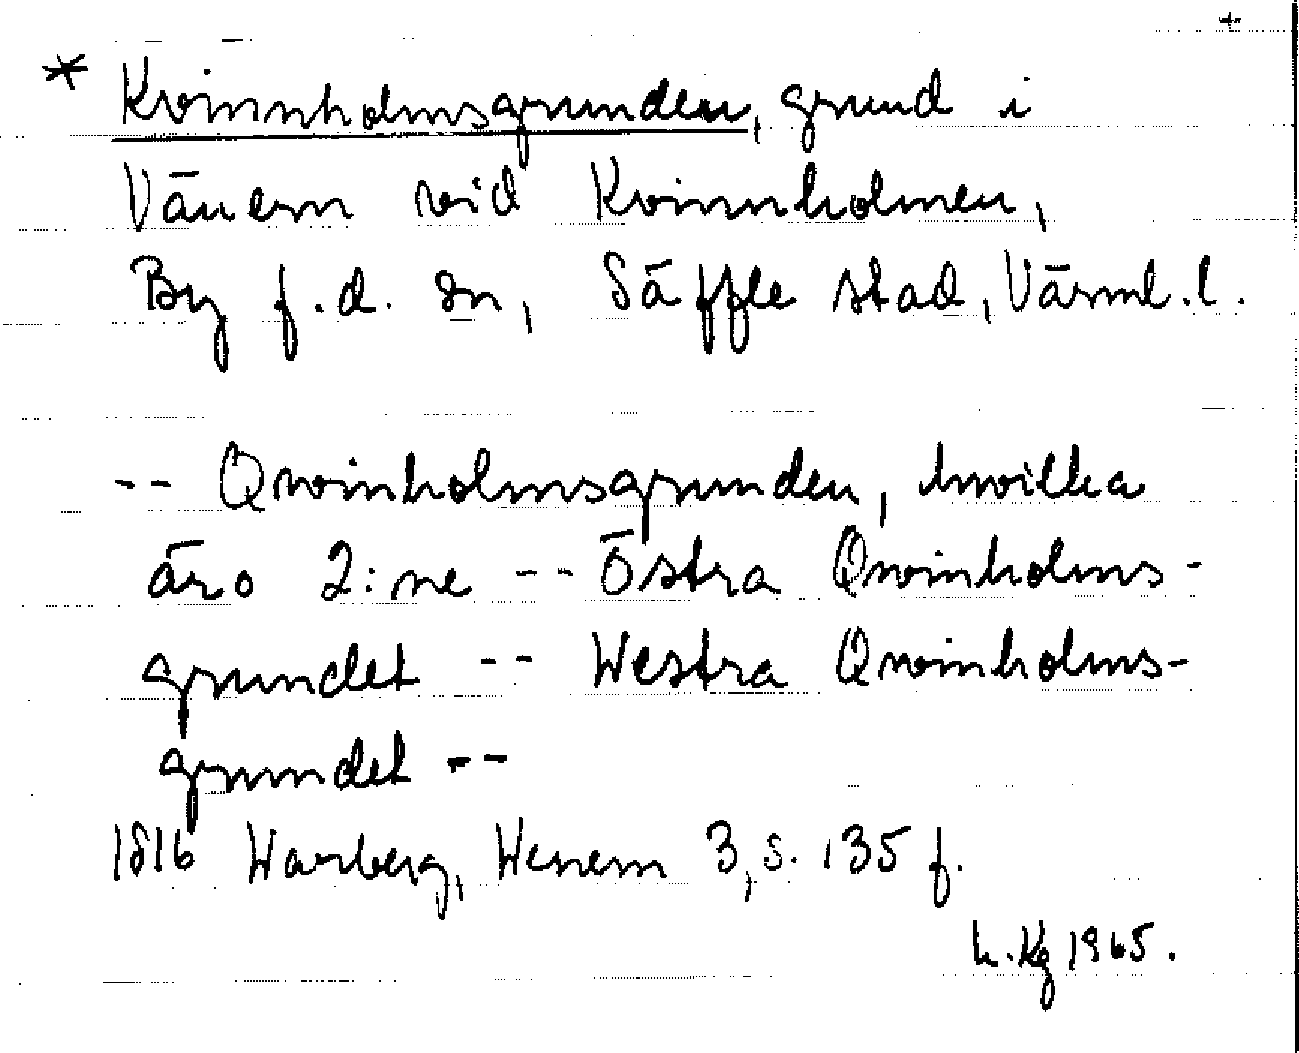 +
* Kvinnholmsgrunden, grund i
Vänern vid Kvinnholmen,
By f.d. sn, Säffle stad, Värml. l.
-- Qwinholmsgrunden, hwilka
äro 2:ne -- Östra Qwinholms-
grundet -- Westra Qwinholms-
grundet --
1816 Warberg, Wenern 3, s. 135 f.
Kg 1965.